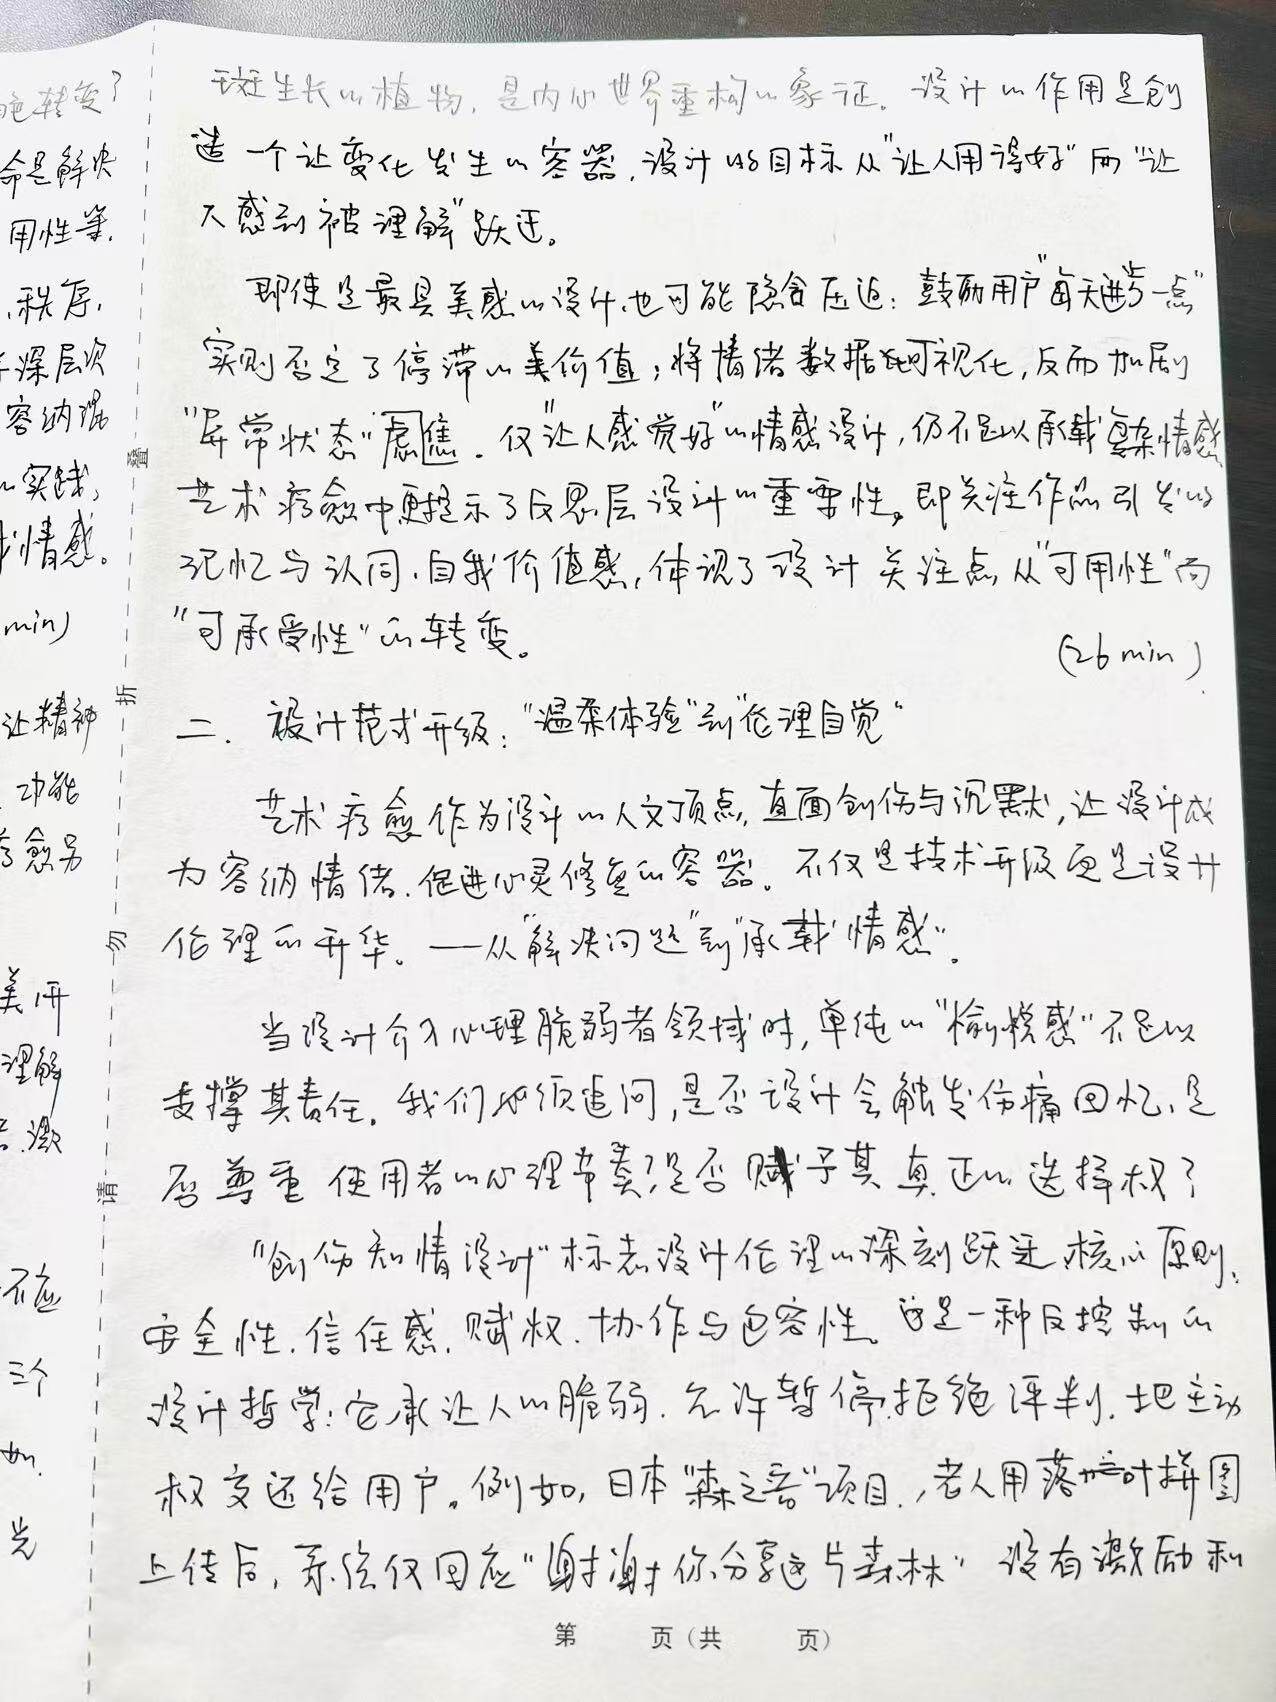 斑生长的植物，是内心世界重构的象征。设计的作用是创
造一个让变化发生的容器，设计的目标从"让人用得好"向"让
人感到被理解"跃迁。
即使是最具美感的设计，也可能隐含压迫：鼓励用户"每天进步一点"
实则否定了停滞的美价值；将情绪数据可视化，反而加剧
"异常状态"焦虑。仅"让人感觉好"的情感设计，仍不足以承载复杂情感
艺术疗愈中更提示了反思层设计的重要性。即关注作品引发的
记忆与认同、自我价值感，体现了设计关注点从"可用性"向
"可承受性"的转变。
(26min)
二、设计范式升级："温柔体验"到"伦理自觉"
艺术疗愈作为设计的人文顶点，直面创伤与沉默，让设计成
为容纳情绪、促进心灵修复的容器。不仅是技术升级更是设计
伦理的升华。——从"解决问题"到"承载情感"。
当设计介入心理脆弱者领域时，单纯的"愉悦感"不足以
支撑其责任。我们必须追问，是否设计会触发伤痛回忆，是
否尊重使用者的心理节奏？是否赋予其真正的选择权？
"创伤知情设计"标志设计伦理的深刻跃迁，核心原则：
安全性、信任感、赋权、协作与包容性。这是一种反控制的
设计哲学：它承让人的脆弱、允许暂停、拒绝评判、把主动
权交还给用户。例如，日本"森之音"项目，老人用落叶拼图
上传后，系统仅回应"谢谢你分享这片森林"没有激励和
第 页（共 页）
色转变了
命是解决
用性等.
、秩序，
深层次
容纳混
的实践，
情感。
min)
让精神
功能
疗愈另
美研
理解
激
不应
三个
如.
光
叠
折
勿
请